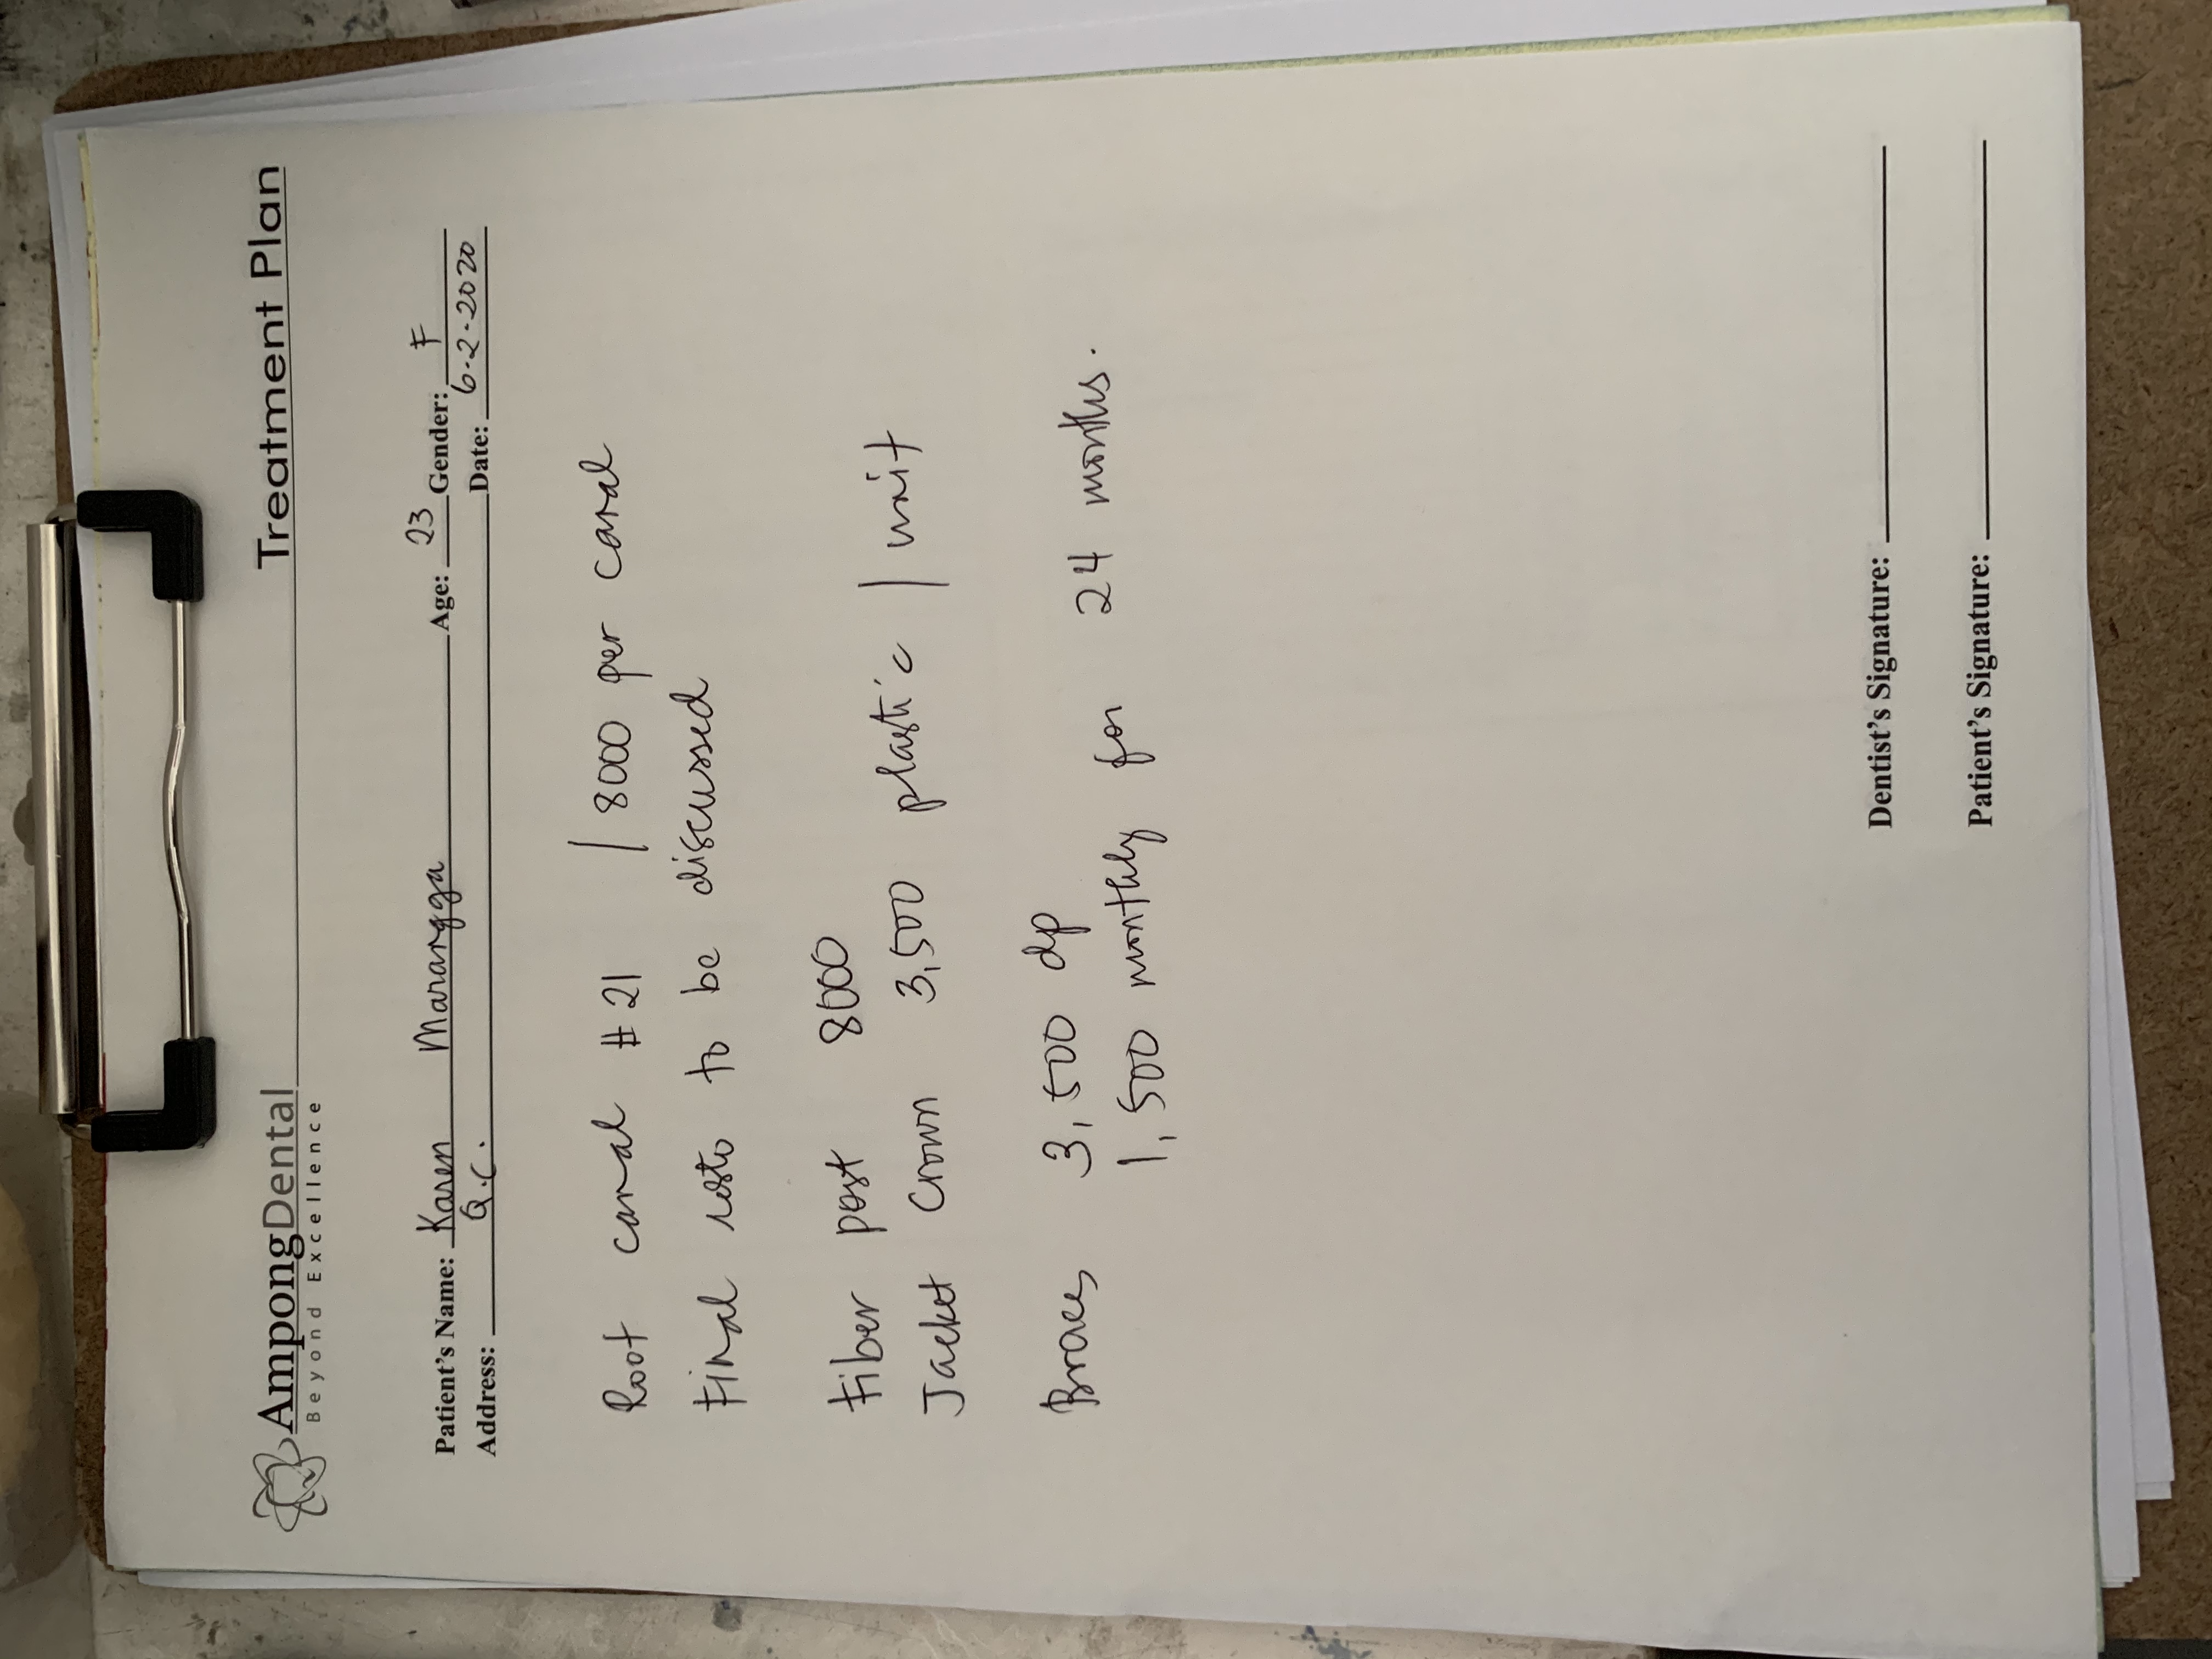 AmpongDental Treatment Plan
Beyond Excellence
Patient's Name: Karen Marangga Age: 23 Gender: F
Address: Q.C. Date: 6-2-2020
Root canal #21 / 8000 per canal
Final resto to be discussed
Fiber post 8000
Jacket Crown 3,500 plastic / unit
Braces 3,500 dp
1,500 monthly for 24 months.
Dentist's Signature:
Patient's Signature: